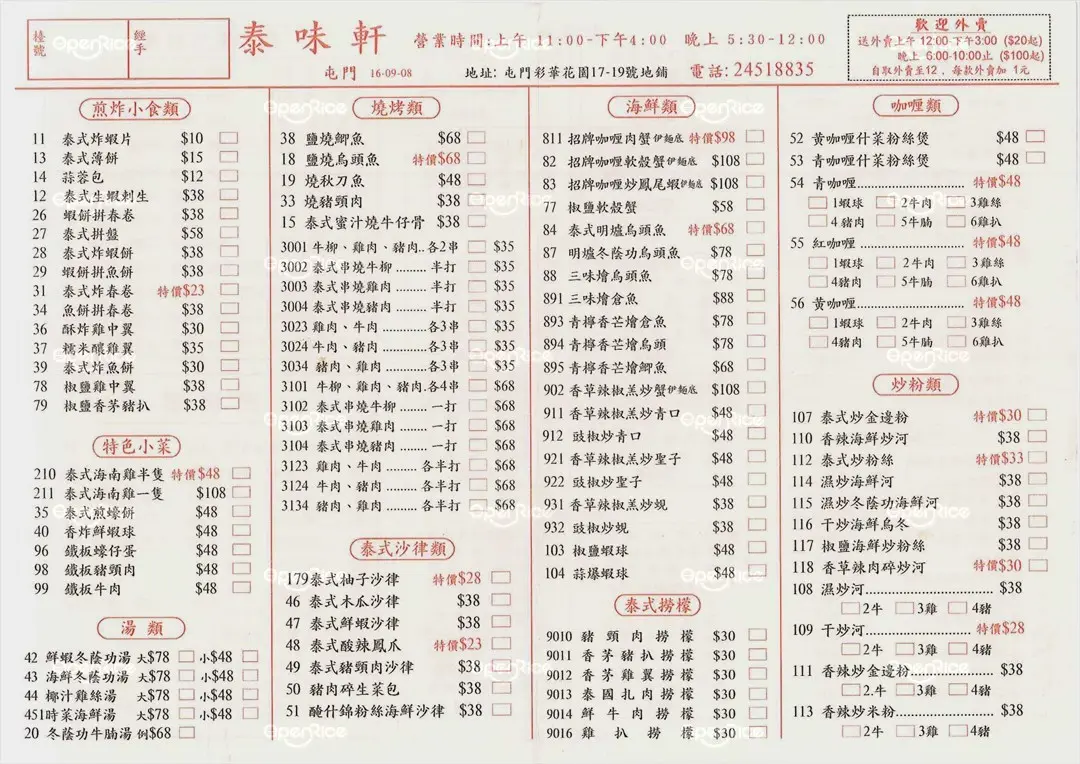 檯號
經手
泰味軒
營業時間:上午 11:00-下午4:00 晚上 5:30-12:00
屯門 16-09-08
地址: 屯門彩華花園17-19號地鋪 電話: 24518835
歡迎外賣
送外賣上午 12:00-下午3:00 ($20起)
晚上 6:00-10:00止 ($100起)
自取外賣至12，每款外賣加 1元
煎炸小食類
11 泰式炸蝦片 $10
13 泰式薄餅 $15
14 蒜蓉包 $12
12 泰式生蝦刺生 $38
26 蝦餅拼春卷 $38
27 泰式拼盤 $58
28 泰式炸蝦餅 $38
29 蝦餅拼魚餅 $38
31 泰式炸春卷 特價$23
34 魚餅拼春卷 $38
36 酥炸雞中翼 $30
37 糯米釀雞翼 $35
39 泰式炸魚餅 $30
78 椒鹽雞中翼 $38
79 椒鹽香茅豬扒 $38
特色小菜
210 泰式海南雞半隻 特價$48
211 泰式海南雞一隻 $108
35 泰式煎蠔餅 $48
40 香炸鮮蝦球 $48
96 鐵扳蠔仔蛋 $48
98 鐵扳豬頸肉 $48
99 鐵扳牛肉 $48
湯類
42 鮮蝦冬蔭功湯 大$78 小$48
43 海鮮冬蔭功湯 大$78 小$48
44 椰汁雞絲湯 大$78 小$48
451時菜海鮮湯 大$78 小$48
20 冬蔭功牛腩湯 例$68
燒烤類
38 鹽燒鯽魚 $68
18 鹽燒烏頭魚 特價$68
19 燒秋刀魚 $48
33 燒豬頸肉 $38
15 泰式蜜汁燒牛仔骨 $38
3001 牛柳、雞肉、豬肉..各2串 $35
3002 泰式串燒牛柳 ......... 半打 $35
3003 泰式串燒雞肉 ......... 半打 $35
3004 泰式串燒豬肉 ......... 半打 $35
3023 雞肉、牛肉 ............各3串 $35
3024 牛肉、豬肉 ............各3串 $35
3034 豬肉、雞肉 ............各3串 $35
3101 牛柳、雞肉、豬肉.各4串 $68
3102 泰式串燒牛柳 ........ 一打 $68
3103 泰式串燒雞肉 ........ 一打 $68
3104 泰式串燒豬肉 ........ 一打 $68
3123 雞肉、牛肉 ........... 各半打 $68
3124 牛肉、豬肉 ........... 各半打 $68
3134 豬肉、雞肉 ........... 各半打 $68
泰式沙律類
179泰式柚子沙律 特價$28
46 泰式木瓜沙律 $38
47 泰式鮮蝦沙律 $38
48 泰式酸辣鳳爪 特價$23
49 泰式豬頸肉沙律 $38
50 豬肉碎生菜包 $38
51 酸什錦粉絲海鮮沙律 $38
海鮮類
811 招牌咖喱肉蟹伊麵底 特價$98
82 招牌咖喱軟殼蟹伊麵底 $108
83 招牌咖喱炒鳳尾蝦伊麵底 $108
77 椒鹽軟殼蟹 $58
84 泰式明爐烏頭魚 特價$68
87 明爐冬蔭功烏頭魚 $78
88 三味燴烏頭魚 $78
891 三味燴倉魚 $88
893 青檸香芒燴倉魚 $78
894 青檸香芒燴烏頭 $78
895 青檸香芒燴鯽魚 $68
902 香草辣椒羔炒蟹伊麵底 $108
911 香草辣椒羔炒青口 $48
912 豉椒炒青口 $48
921 香草辣椒羔炒聖子 $48
922 豉椒炒聖子 $48
931 香草辣椒羔炒蜆 $38
932 豉椒炒蜆 $38
103 椒鹽蝦球 $48
104 蒜爆蝦球 $48
泰式撈檬
9010 豬頸肉撈檬 $30
9011 香茅豬扒撈檬 $30
9012 香茅雞翼撈檬 $30
9013 泰國扎肉撈檬 $30
9014 鮮牛肉撈檬 $30
9016 雞扒撈檬 $30
咖喱類
52 黃咖喱什菜粉絲煲 $48
53 青咖喱什菜粉絲煲 $48
54 青咖喱........................ 特價$48
1蝦球 2牛肉 3雞絲
4豬肉 5牛腩 6雞扒
55 紅咖喱 ....................... 特價$48
1蝦球 2牛肉 3雞絲
4豬肉 5牛腩 6雞扒
56 黃咖喱........................ 特價$48
1蝦球 2牛肉 3雞絲
4豬肉 5牛腩 6雞扒
炒粉類
107 泰式炒金邊粉 特價$30
110 香辣海鮮炒河 $38
112 泰式炒粉絲 特價$33
114 濕炒海鮮河 $38
115 濕炒冬蔭功海鮮河 $38
116 干炒海鮮烏冬 $38
117 椒鹽海鮮炒粉絲 $38
118 香草辣肉碎炒河 特價$30
108 濕炒河............................. $38
2牛 3雞 4豬
109 干炒河........................ 特價$28
2牛 3雞 4豬
111 香辣炒金邊粉.................... $38
2.牛 3雞 4豬
113 香辣炒米粉....................... $38
2牛 3雞 4豬
OpenRice